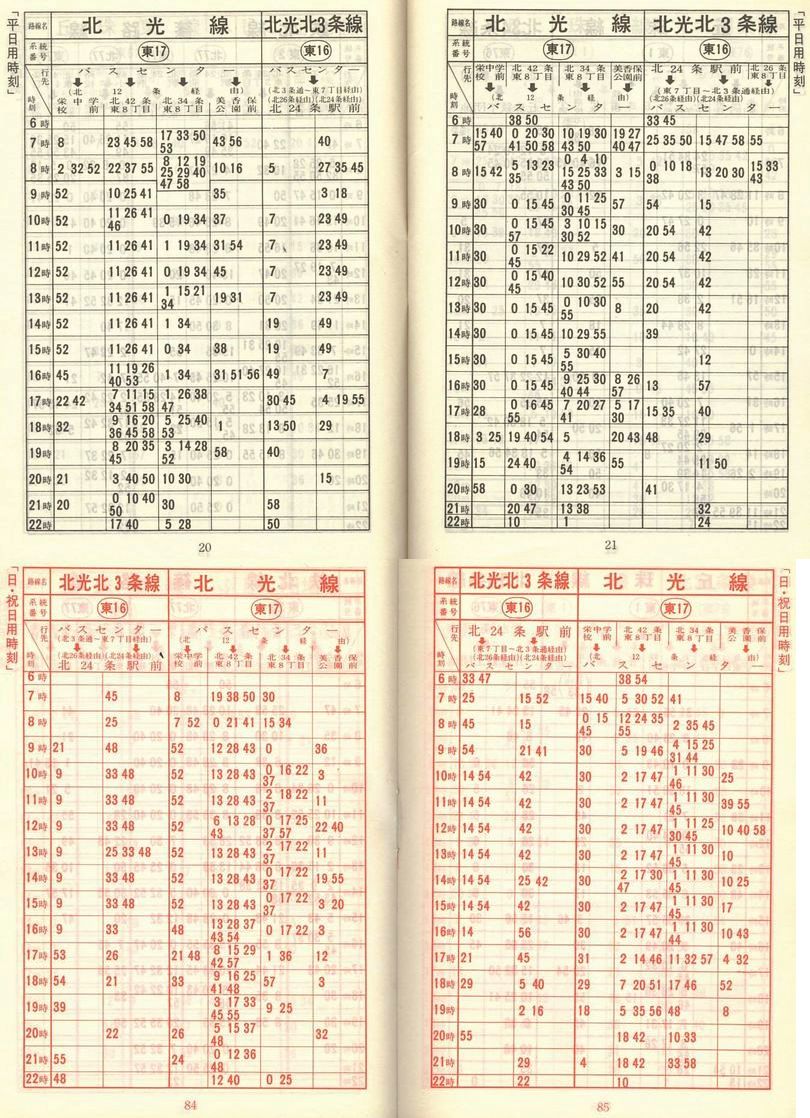 「平日用時刻」
路線名 北光線 北光北3条線
系統番号 東17 東16
行先 時刻
バスセンター バスセンター
(北12条経由) (北3条通~東7丁目経由)
栄中学校前 北42条東8丁目 北34条東8丁目 美香保公園前 (北26条経由)(北24条経由)
北24条駅前
6時
7時 8 23 45 58 17 33 50 53 43 56 40
8時 2 32 52 22 37 55 8 12 19 25 29 40 47 58 10 16 5 27 35 45
9時 52 10 25 41 35 3 18
10時 52 11 26 41 46 0 19 34 37 7 23 49
11時 52 11 26 41 1 19 34 31 54 7 23 49
12時 52 11 26 41 0 19 34 45 7 23 49
13時 52 11 26 41 1 15 21 34 19 31 7 23 49
14時 52 11 26 41 1 34 19 49
15時 52 11 26 41 0 34 38 19 49
16時 45 11 19 26 40 53 1 34 31 51 56 49 7
17時 22 42 7 11 15 34 51 58 1 26 38 47 30 45 4 19 55
18時 32 9 16 20 36 45 58 5 25 40 53 1 13 50 29
19時 8 20 35 45 3 14 28 52 58 40
20時 21 3 40 50 10 30 15
21時 20 0 10 40 50 30 58
22時 17 40 5 28 50
20
「平日用時刻」
路線名 北光線 北光北3条線
系統番号 東17 東16
行先 時刻
栄中学校前 北42条東8丁目 北34条東8丁目 美香保公園前 北24条駅前 北26条東8丁目
(北12条経由) (東7丁目~北3条通経由)
(北26条経由)(北24条経由)
バスセンター バスセンター
6時 38 50 33 45
7時 15 40 57 0 20 30 41 50 58 10 19 30 43 50 19 27 40 47 25 35 50 15 47 58 55
8時 15 42 5 13 23 35 0 4 10 15 25 33 43 50 3 15 0 10 18 38 13 20 30 15 33 43
9時 30 0 15 45 0 11 25 30 45 57 54 15
10時 30 0 15 45 57 3 10 15 30 52 30 20 54 42
11時 30 0 15 22 45 10 29 52 41 20 54 42
12時 30 0 15 40 45 10 30 52 55 20 54 42
13時 30 0 15 45 0 10 30 55 8 20 42
14時 30 0 15 45 10 29 55 39
15時 30 0 15 45 5 30 40 55 12
16時 30 0 15 45 9 25 30 40 44 8 26 57 13 57
17時 28 0 16 45 55 7 20 27 41 5 17 30 15 35 40
18時 3 25 19 40 54 5 20 43 48 29
19時 15 24 40 4 14 36 54 55 11 50
20時 58 0 30 13 23 53 41
21時 20 47 13 38 32
22時 10 1 24
21
「日・祝日用時刻」
路線名 北光北3条線 北光線
系統番号 東16 東17
行先 時刻
バスセンター バスセンター
(北3条通~東7丁目経由) (北12条経由)
(北26条経由)(北24条経由) 栄中学校前 北42条東8丁目 北34条東8丁目 美香保公園前
北24条駅前
6時
7時 45 8 19 38 50 30
8時 25 7 52 0 21 41 15 34
9時 21 48 52 12 28 43 0 36
10時 9 33 48 52 13 28 43 0 16 22 37 3
11時 9 33 48 52 13 28 43 2 18 22 37 11
12時 9 33 48 52 6 13 28 43 0 17 25 37 57 22 40
13時 9 25 33 48 52 13 28 43 2 17 22 37 11
14時 9 33 48 52 13 28 43 0 17 22 37 19 55
15時 9 33 48 52 13 28 43 0 17 22 37 3 20
16時 9 33 48 13 28 37 43 54 0 17 22 3
17時 53 26 21 48 8 15 29 42 57 1 36 12
18時 54 21 33 9 16 25 41 48 57 3
19時 39 3 17 33 45 55 9 25
20時 22 26 5 15 37 48 32
21時 55 24 0 12 36 48
22時 48 12 40 0 25
84
「日・祝日用時刻」
路線名 北光北3条線 北光線
系統番号 東16 東17
行先 時刻
北24条駅前 栄中学校前 北42条東8丁目 北34条東8丁目 美香保公園前
(東7丁目~北3条通経由) (北12条経由)
(北26条経由)(北24条経由)
バスセンター バスセンター
6時 33 47 38 54
7時 25 15 52 15 40 5 30 52 41
8時 45 15 0 15 45 12 24 35 55 2 35 45
9時 54 21 41 30 5 19 46 4 15 25 31 44
10時 14 54 42 30 2 17 47 1 11 30 46 25
11時 14 54 42 30 2 17 47 1 11 30 45 39 55
12時 14 54 42 30 2 17 47 1 11 25 30 45 10 40 58
13時 14 54 42 30 2 17 47 1 11 30 45 10
14時 14 54 25 42 30 2 17 30 47 1 11 30 45 10 25
15時 14 54 42 30 2 17 47 1 11 30 45 17
16時 14 56 30 2 17 47 1 11 30 44 10 43
17時 21 45 31 2 14 46 11 32 57 4 32
18時 29 5 40 29 7 20 51 17 46 52
19時 2 16 18 5 35 56 48 8
20時 55 18 42 10 33
21時 29 4 18 42 33 58
22時 22 10
85